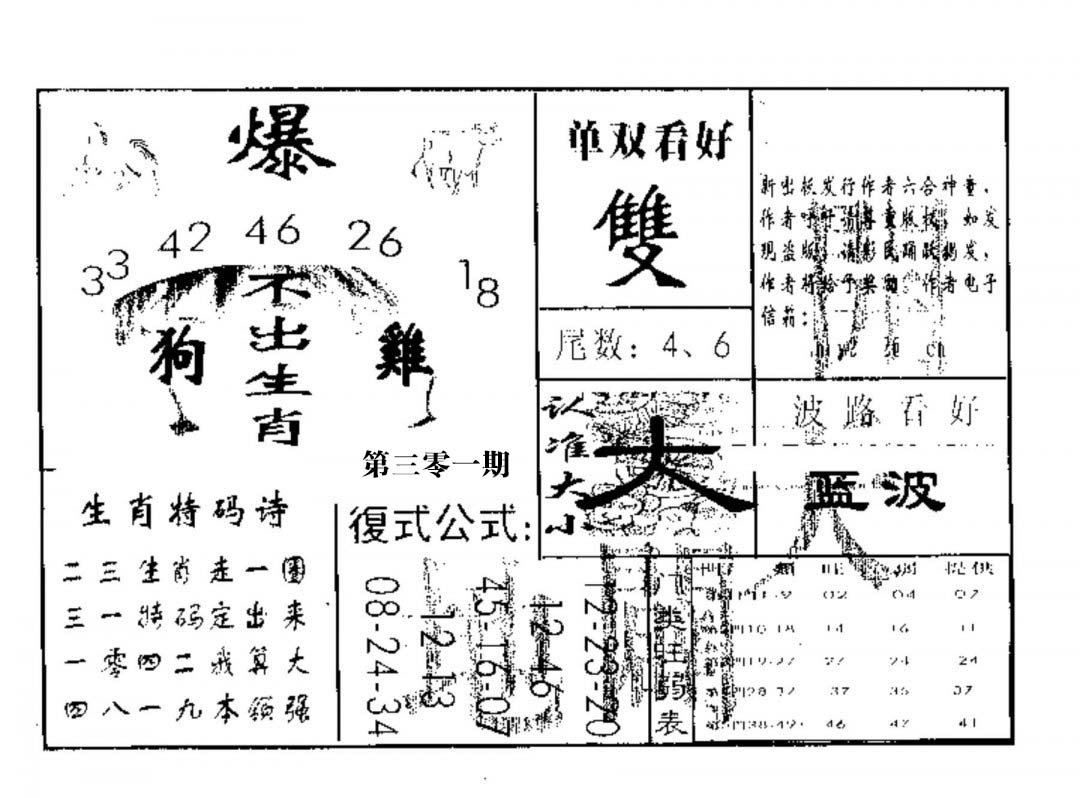 爆
33 42 46 26 18
不出生肖
狗
雞
第三零一期
生肖特码诗
二三生肖走一圈
三一特码定出来
一零四二我算大
四八一九本领强
復式公式:
08-24-34
12-13
45-16-07
12-46
12-23-20
单双看好
雙
尾数:4、6
认准大小
大
新出板发行作者六合神童,
作者吁吁请尊重版权,如发
现盗版,请彩民踊跃揭发,
作者将给予奖励 作者电子
信箱:
波路看好
蓝波
门类旺弱表
旺 弱 提供
1-9 02 04 07
10-18 14 16 11
19-27 27 24 24
28-37 37 35 37
38-49 46 47 41